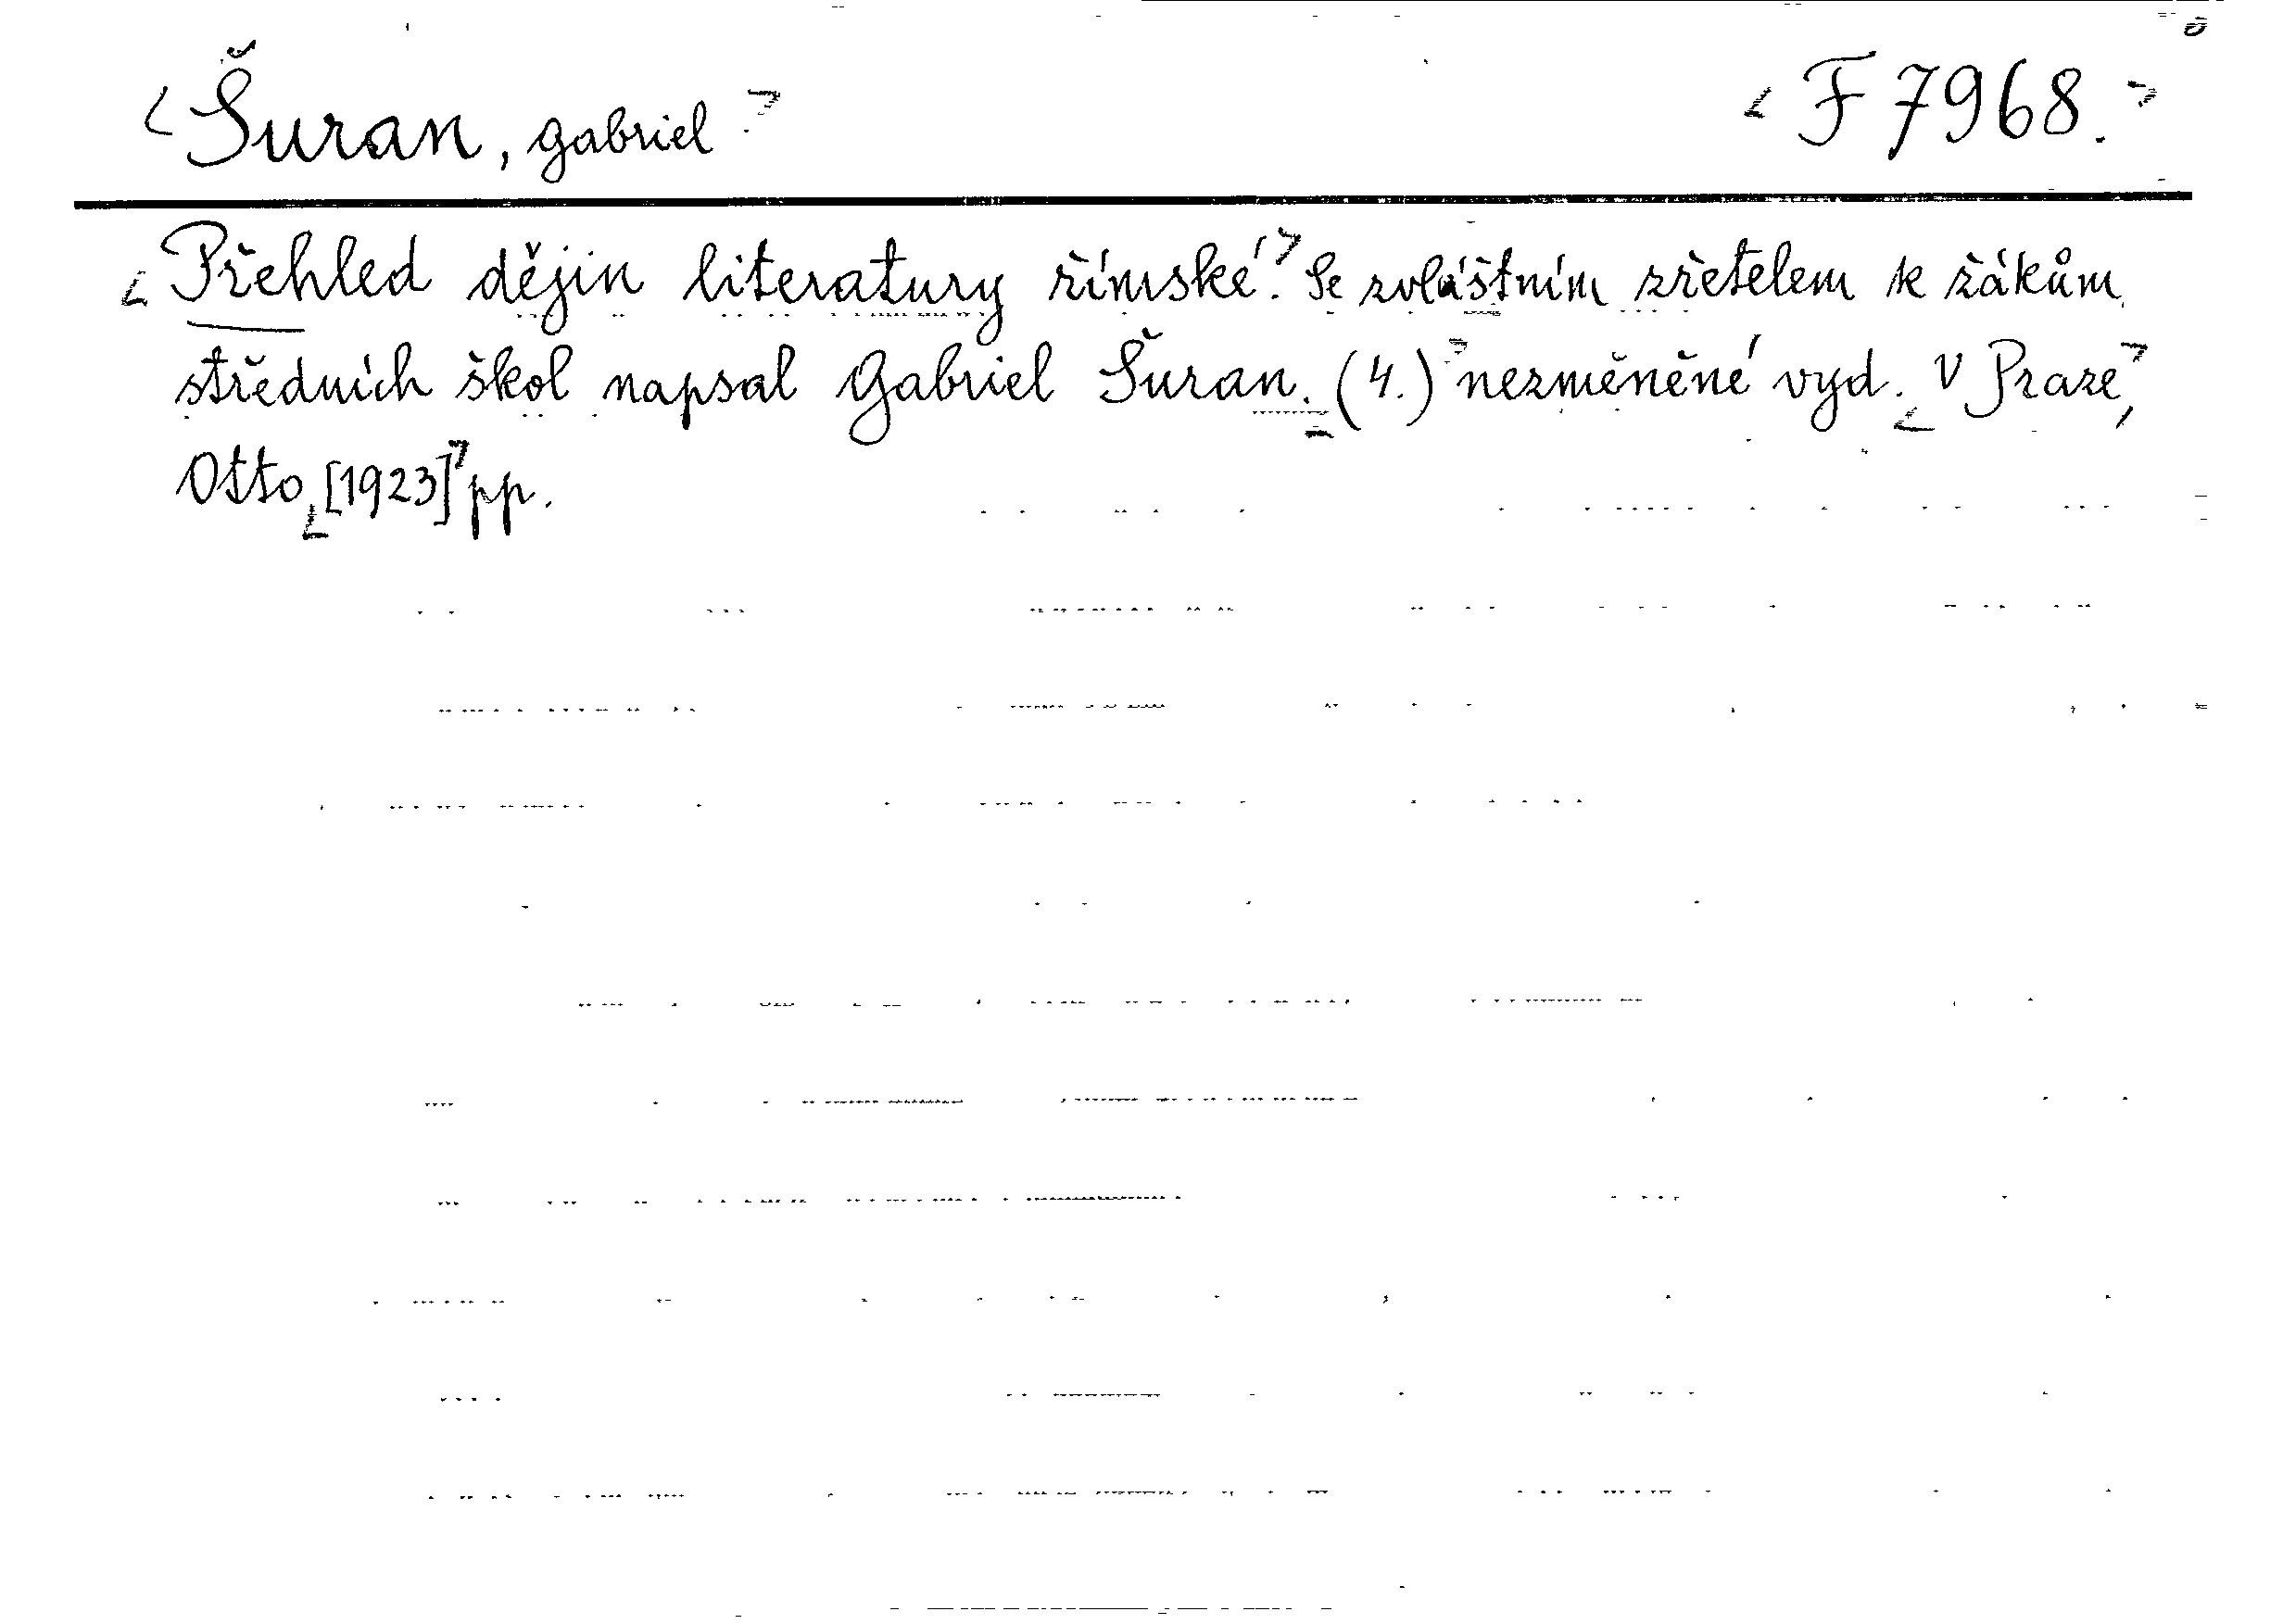 Šuran, Gabriel
F 7968.
Přehled dějin literatury římské. Se zvláštním zřetelem k žákům
středních škol napsal Gabriel Šuran. (4.) nezměněné vyd. V Praze,
Otto [1923] pp.